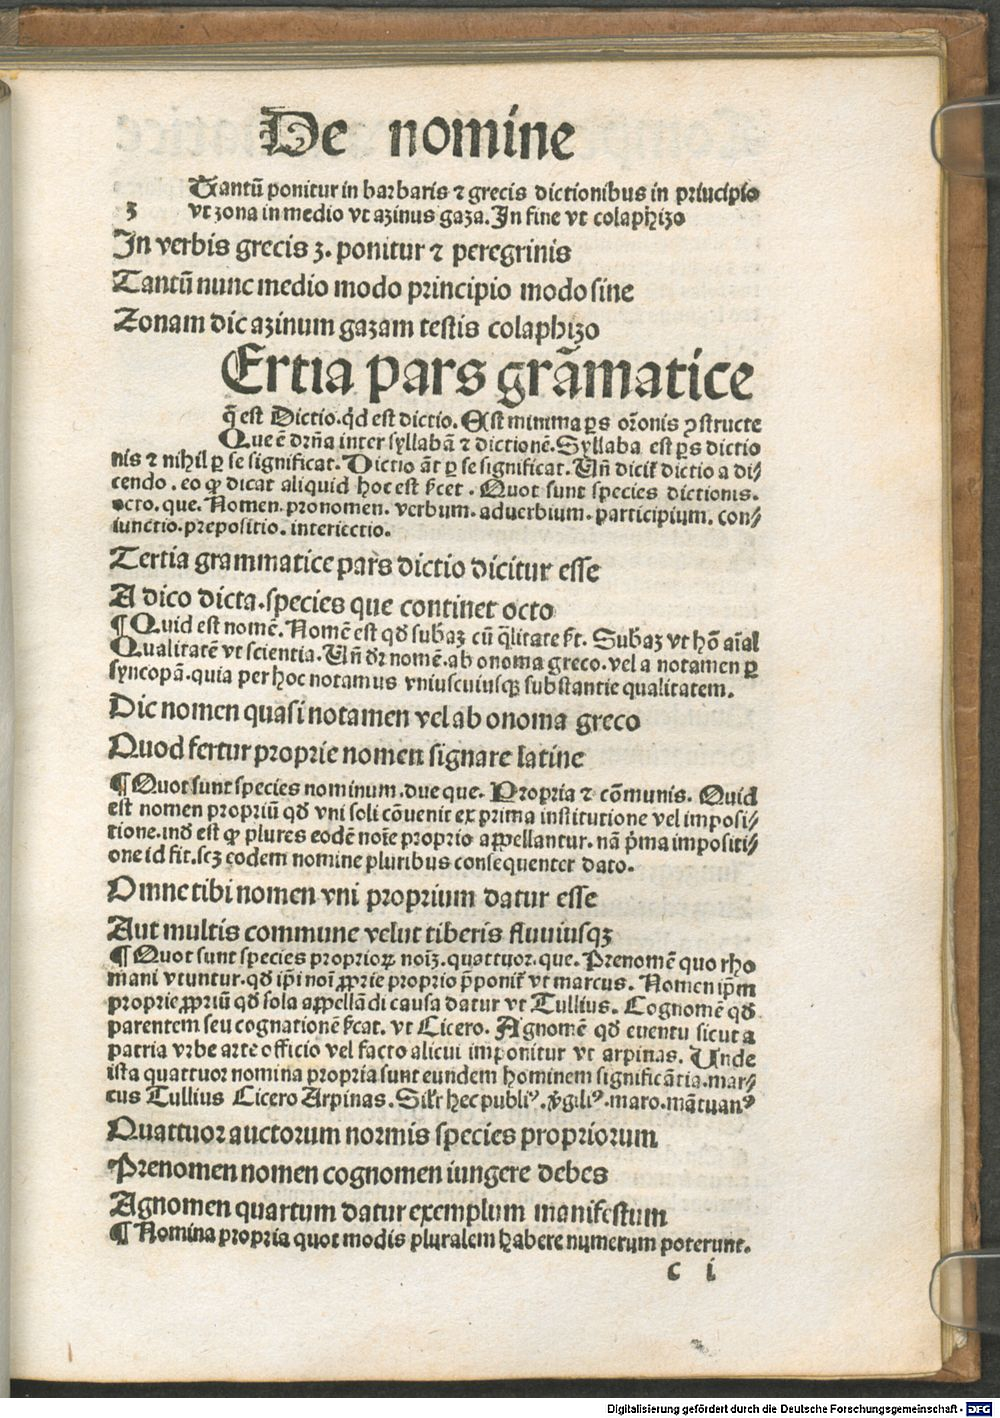 De nomine
Tantū ponitur in barbaris ⁊ grecis dictionibus in principio
ʒ vt zona in medio vt azinus gaza. In fine vt colaphizo
In verbis grecis ʒ. ponitur ⁊ peregrinis
Tantū nunc medio modo principio modo fine
Zonam dic azinum gazam testis colaphizo
Ertia pars grāmatice
q̄ est Dictio. qd̓ est dictio. Est minima ꝑs or̄onis ꝯstructe
Que ē dr̄ña inter syllabā ⁊ dictionē. Syllaba est ꝑs dictio
nis ⁊ nihil ꝑ se significat. Dictio āt ꝑ se significat. Vñ dicit̄ dictio a di⸗
cendo. eo ꝙ dicat aliquid hoc est s̄cet. Quot sunt species dictionis.
octo. que. Nomen. pronomen. verbum. aduerbium. participium. con⸗
iunctio. prepositio. interiectio.
Tertia grammatice pars dictio dicitur esse
A dico dicta. species que continet octo
¶ Quid est nomē. Nomē est qd̓ subāʒ cū q̄litate s̄t. Subāʒ vt hō aīal
Qualitatē vt scientia. Vñ dr̄ nomē. ab onoma greco. vel a notamen ꝑ
syncopā. quia per hoc notamus vniuscuiusqꝫ substantie qualitatem.
Dic nomen quasi notamen vel ab onoma greco
Quod fertur proprie nomen signare latine
¶ Quot sunt species nominum. due que. Propria ⁊ cōmunis. Quid
est nomen propriū qd̓ vni soli cōuenit ex prima institutione vel imposi⸗
tione. ind̓ est ꝙ plures eodē noīe proprio appellantur. nā p̄ma impositi⸗
one id fit. scꝫ eodem nomine pluribus consequenter dato.
Omne tibi nomen vni proprium datur esse
Aut multis commune velut tiberis fluuiusqꝫ
¶ Quot sunt species proprioꝝ noīʒ. quattuor. que. Prenomē quo rho
mani vtuntur. qd̓ ip̄i noī ꝓprie proprio p̄ponit̄ vt marcus. Nomen ip̄m
proprie ꝓpriū qd̓ sola appellādi causa datur vt Tullius. Cognomē qd̓
parentem seu cognationē s̄cat. vt Cicero. Agnomē qd̓ euentu sicut a
patria vrbe arte officio vel facto alicui imponitur vt arpinas. Unde
ista quattuor nomina propria sunt eundem hominem significātia. mar⸗
cus Tullius Cicero Arpinas. Silr̄ hec publiꝰ. v̓giliꝰ. maro. mātuanꝰ
Quattuor auctorum normis species propriorum
Prenomen nomen cognomen iungere debes
Agnomen quartum datur exemplum manifestum
¶ Nomina propria quot modis pluralem habere numerum poterunt.
c i
Digitalisierung gefördert durch die Deutsche Forschungsgemeinschaft - DFG